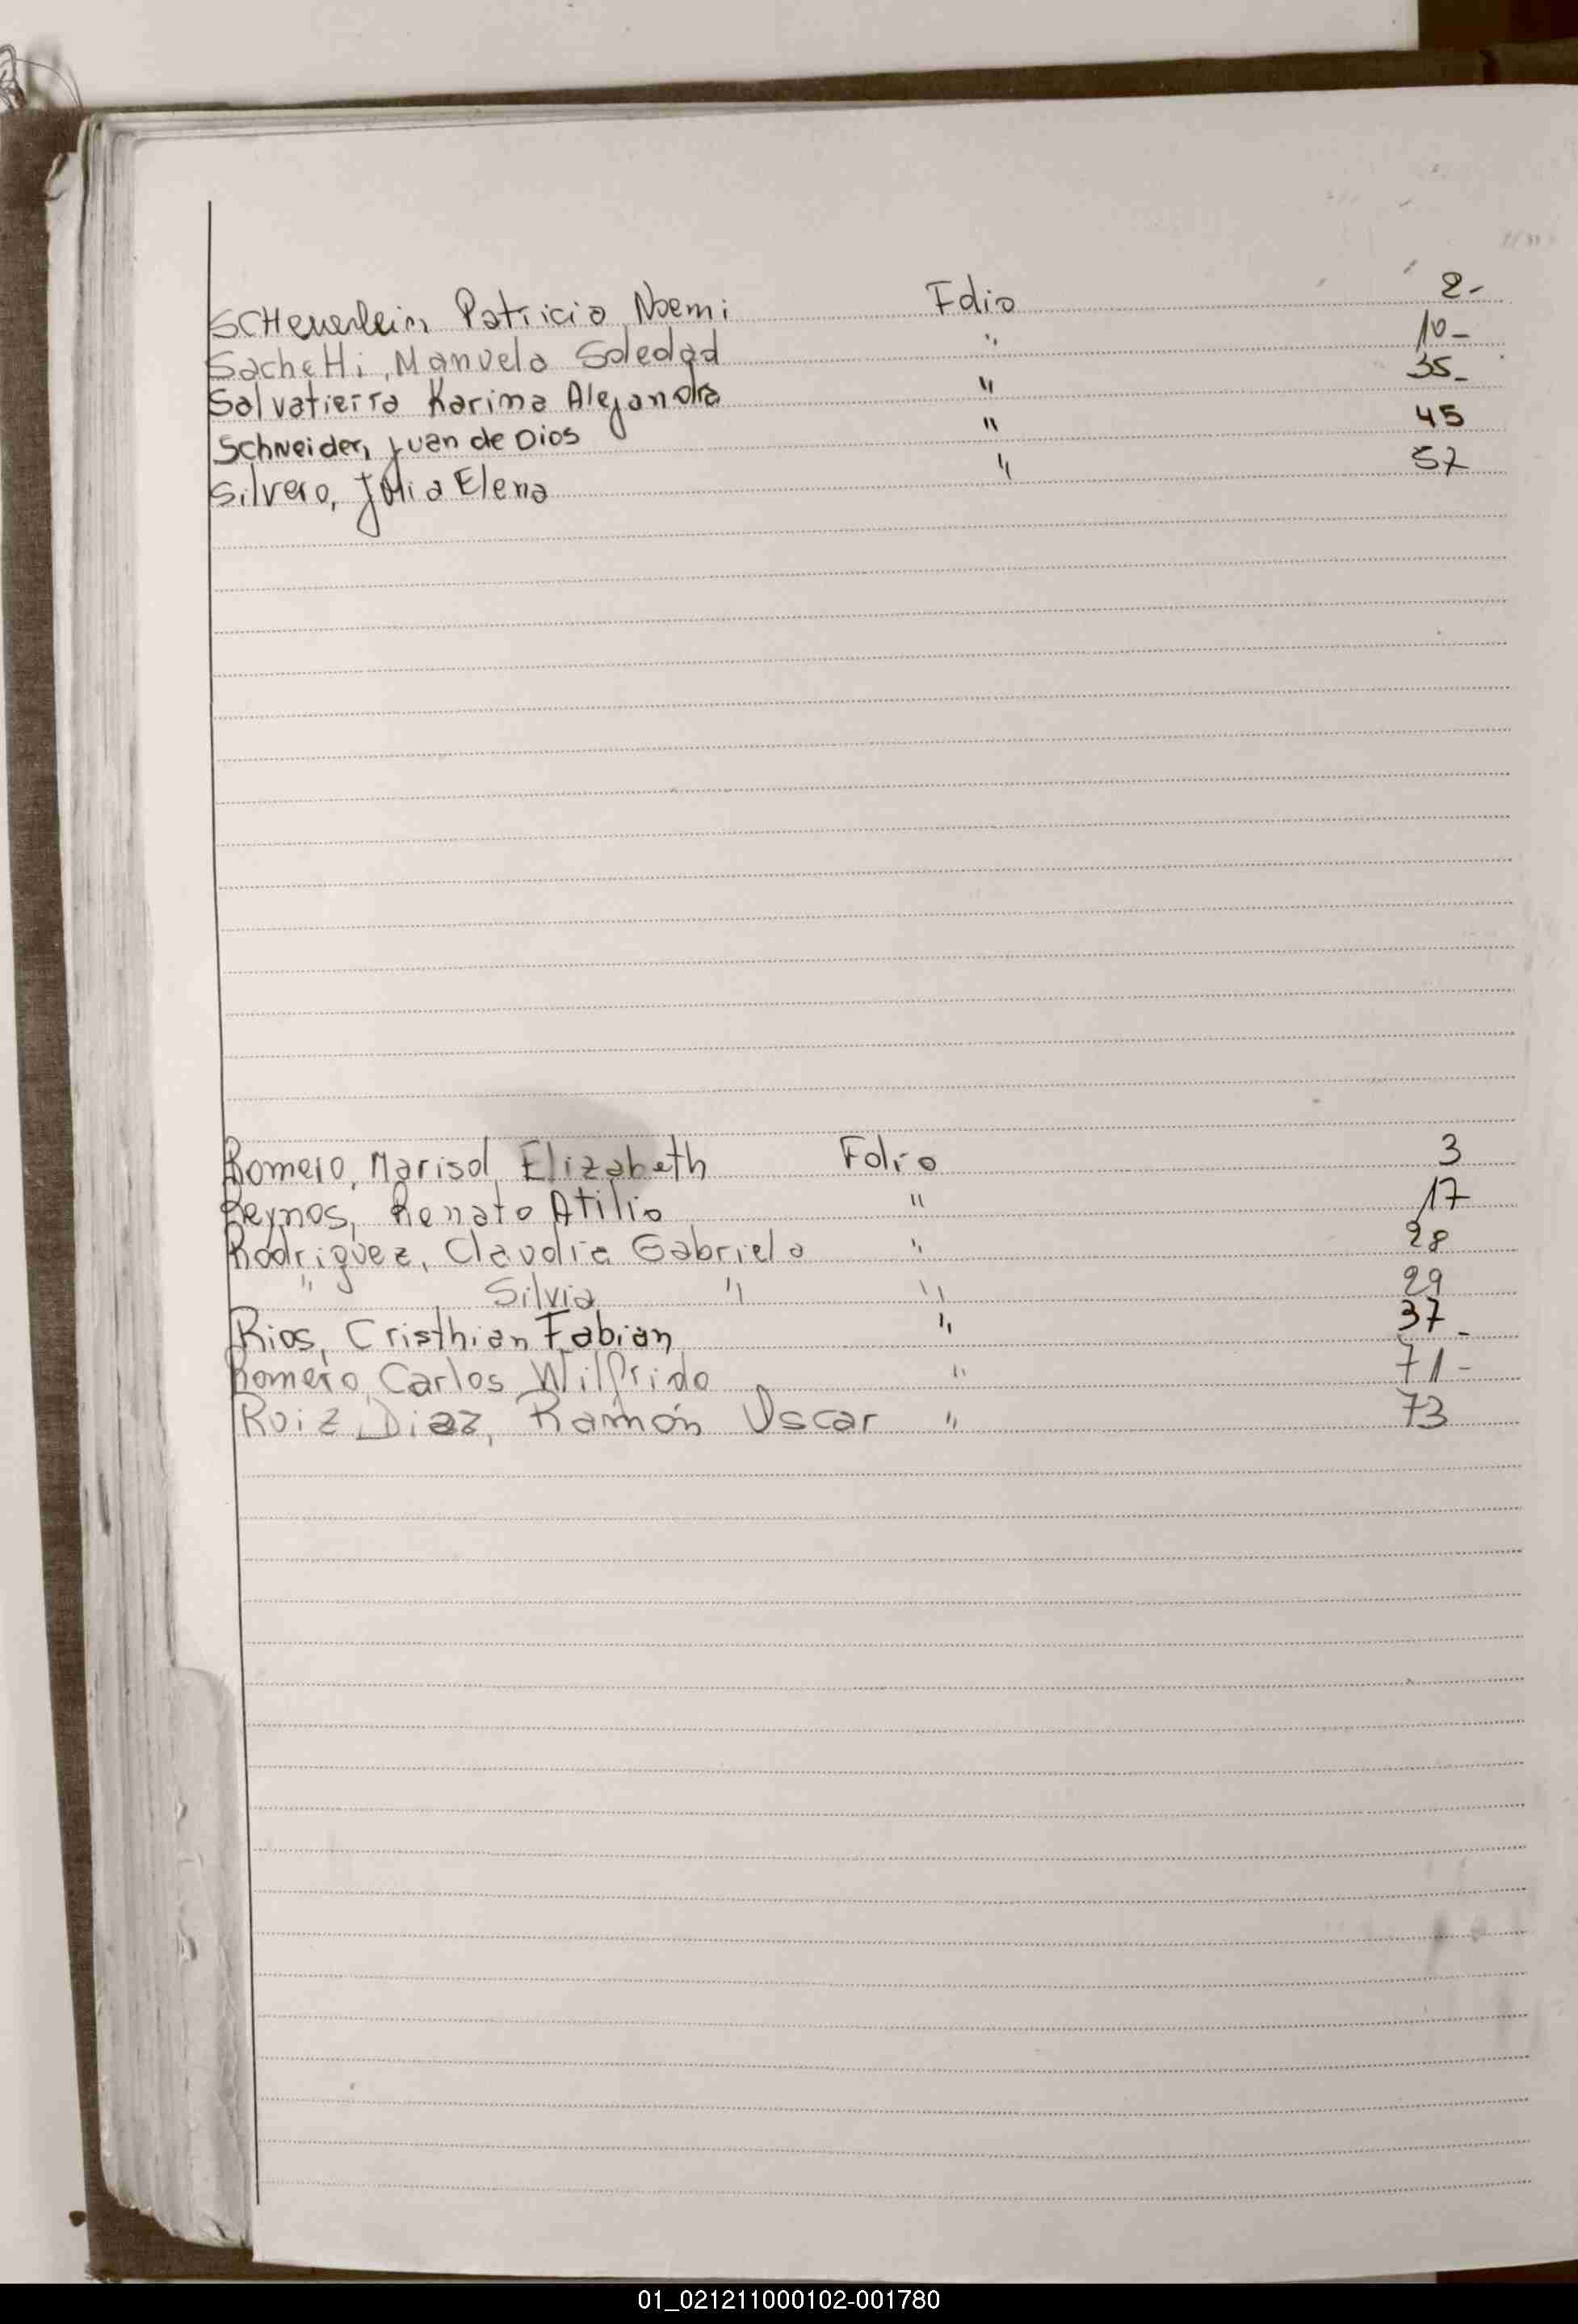 SCHeuerlein Patricia Noemi Folio 2-
Sachetti, Manuela Soledad " 10-
Salvatierra Karina Alejandra " 35-
Schneider, Juan de Dios " 45
Silvero, Julia Elena " 57
Romero, Marisol Elizabeth Folio 3
Reynos, Renato Atilio " 17
Rodriguez, Claudia Gabriela " 28
" Silvia " " 29
Rios, Cristhian Fabian " 37-
Romero, Carlos Wilfrido " 71-
Ruiz Diaz, Ramón Oscar " 73
01_021211000102-001780